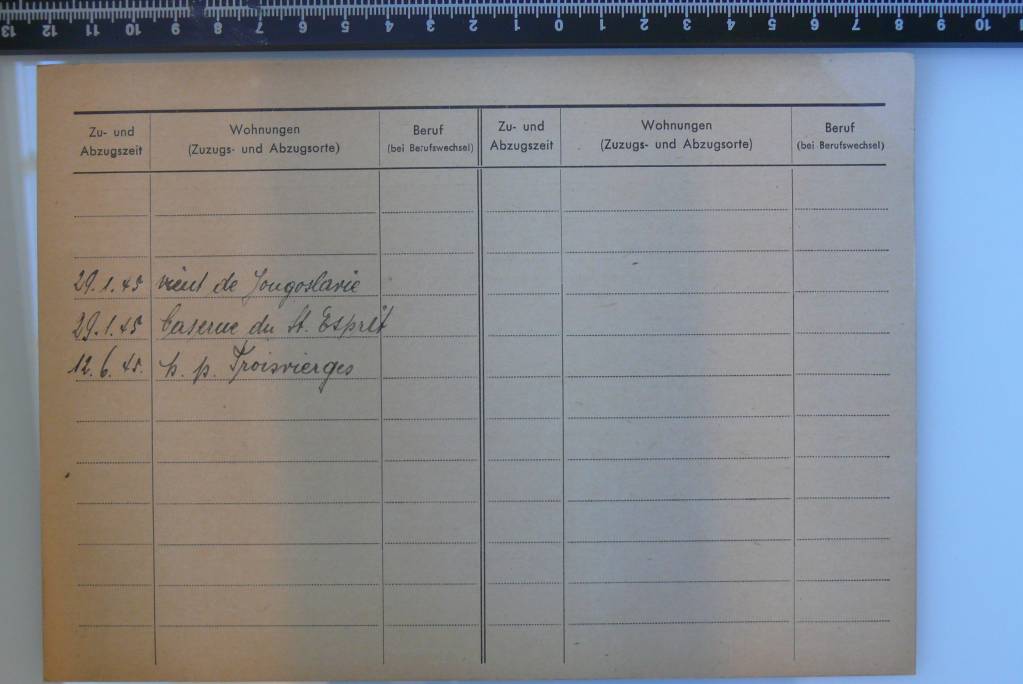 13 12 11 10 9 8 7 6 5 4 3 2 1 0 1 2 3 4 5 6 7 8 9 10
Zu- und Abzugszeit
Wohnungen
(Zuzugs- und Abzugsorte)
Beruf
(bei Berufswechsel)
Zu- und Abzugszeit
Wohnungen
(Zuzugs- und Abzugsorte)
Beruf
(bei Berufswechsel)
29.1.45 vient de Jougoslavie
29.1.45 Caserne du St. Esprit
12.6.45. h. p. Troisvierges